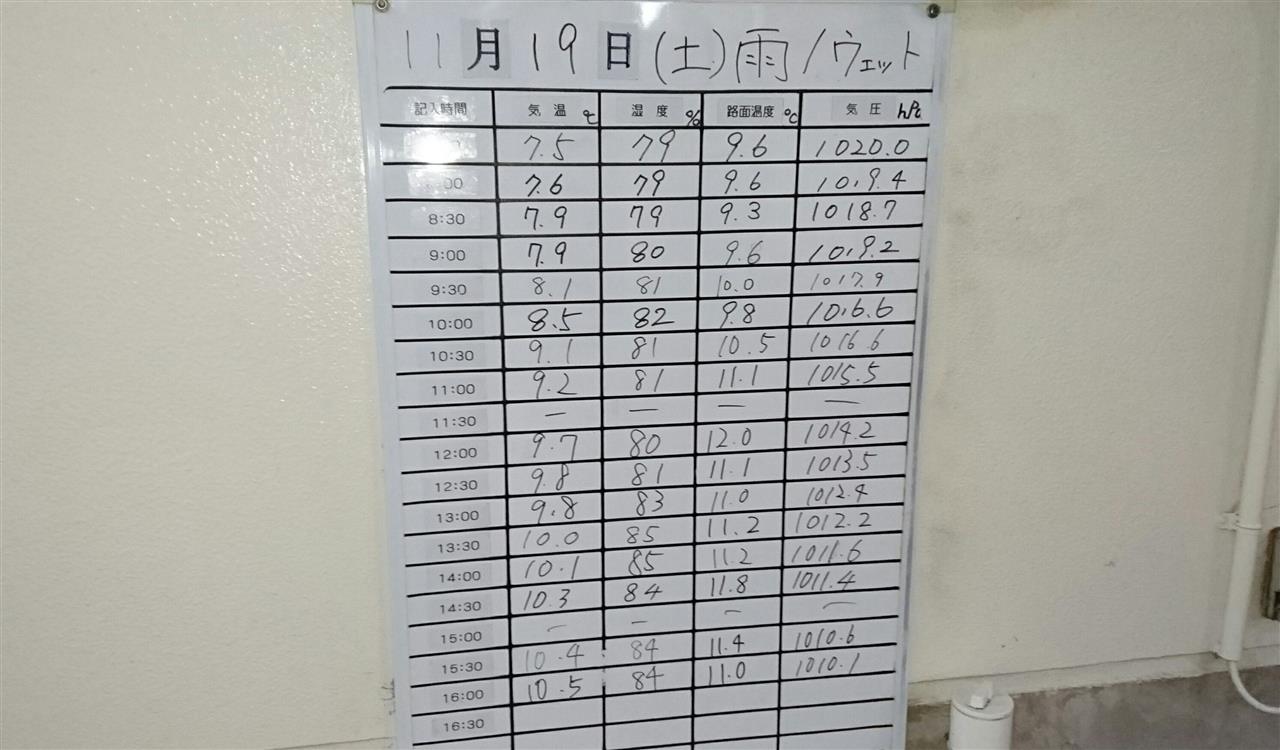 11月19日(土)雨/ウェット
記入時間 気温 ℃ 湿度 % 路面温度 ℃ 気圧 hPa
7.5 79 9.6 1020.0
:00 7.6 79 9.6 1019.4
8:30 7.9 79 9.3 1018.7
9:00 7.9 80 9.6 1019.2
9:30 8.1 81 10.0 1017.9
10:00 8.5 82 9.8 1016.6
10:30 9.1 81 10.5 1016.6
11:00 9.2 81 11.1 1015.5
11:30 — — — —
12:00 9.7 80 12.0 1014.2
12:30 9.8 81 11.1 1013.5
13:00 9.8 83 11.0 1012.4
13:30 10.0 85 11.2 1012.2
14:00 10.1 85 11.2 1011.6
14:30 10.3 84 11.8 1011.4
15:00 — — — —
15:30 10.4 84 11.4 1010.6
16:00 10.5 84 11.0 1010.1
16:30